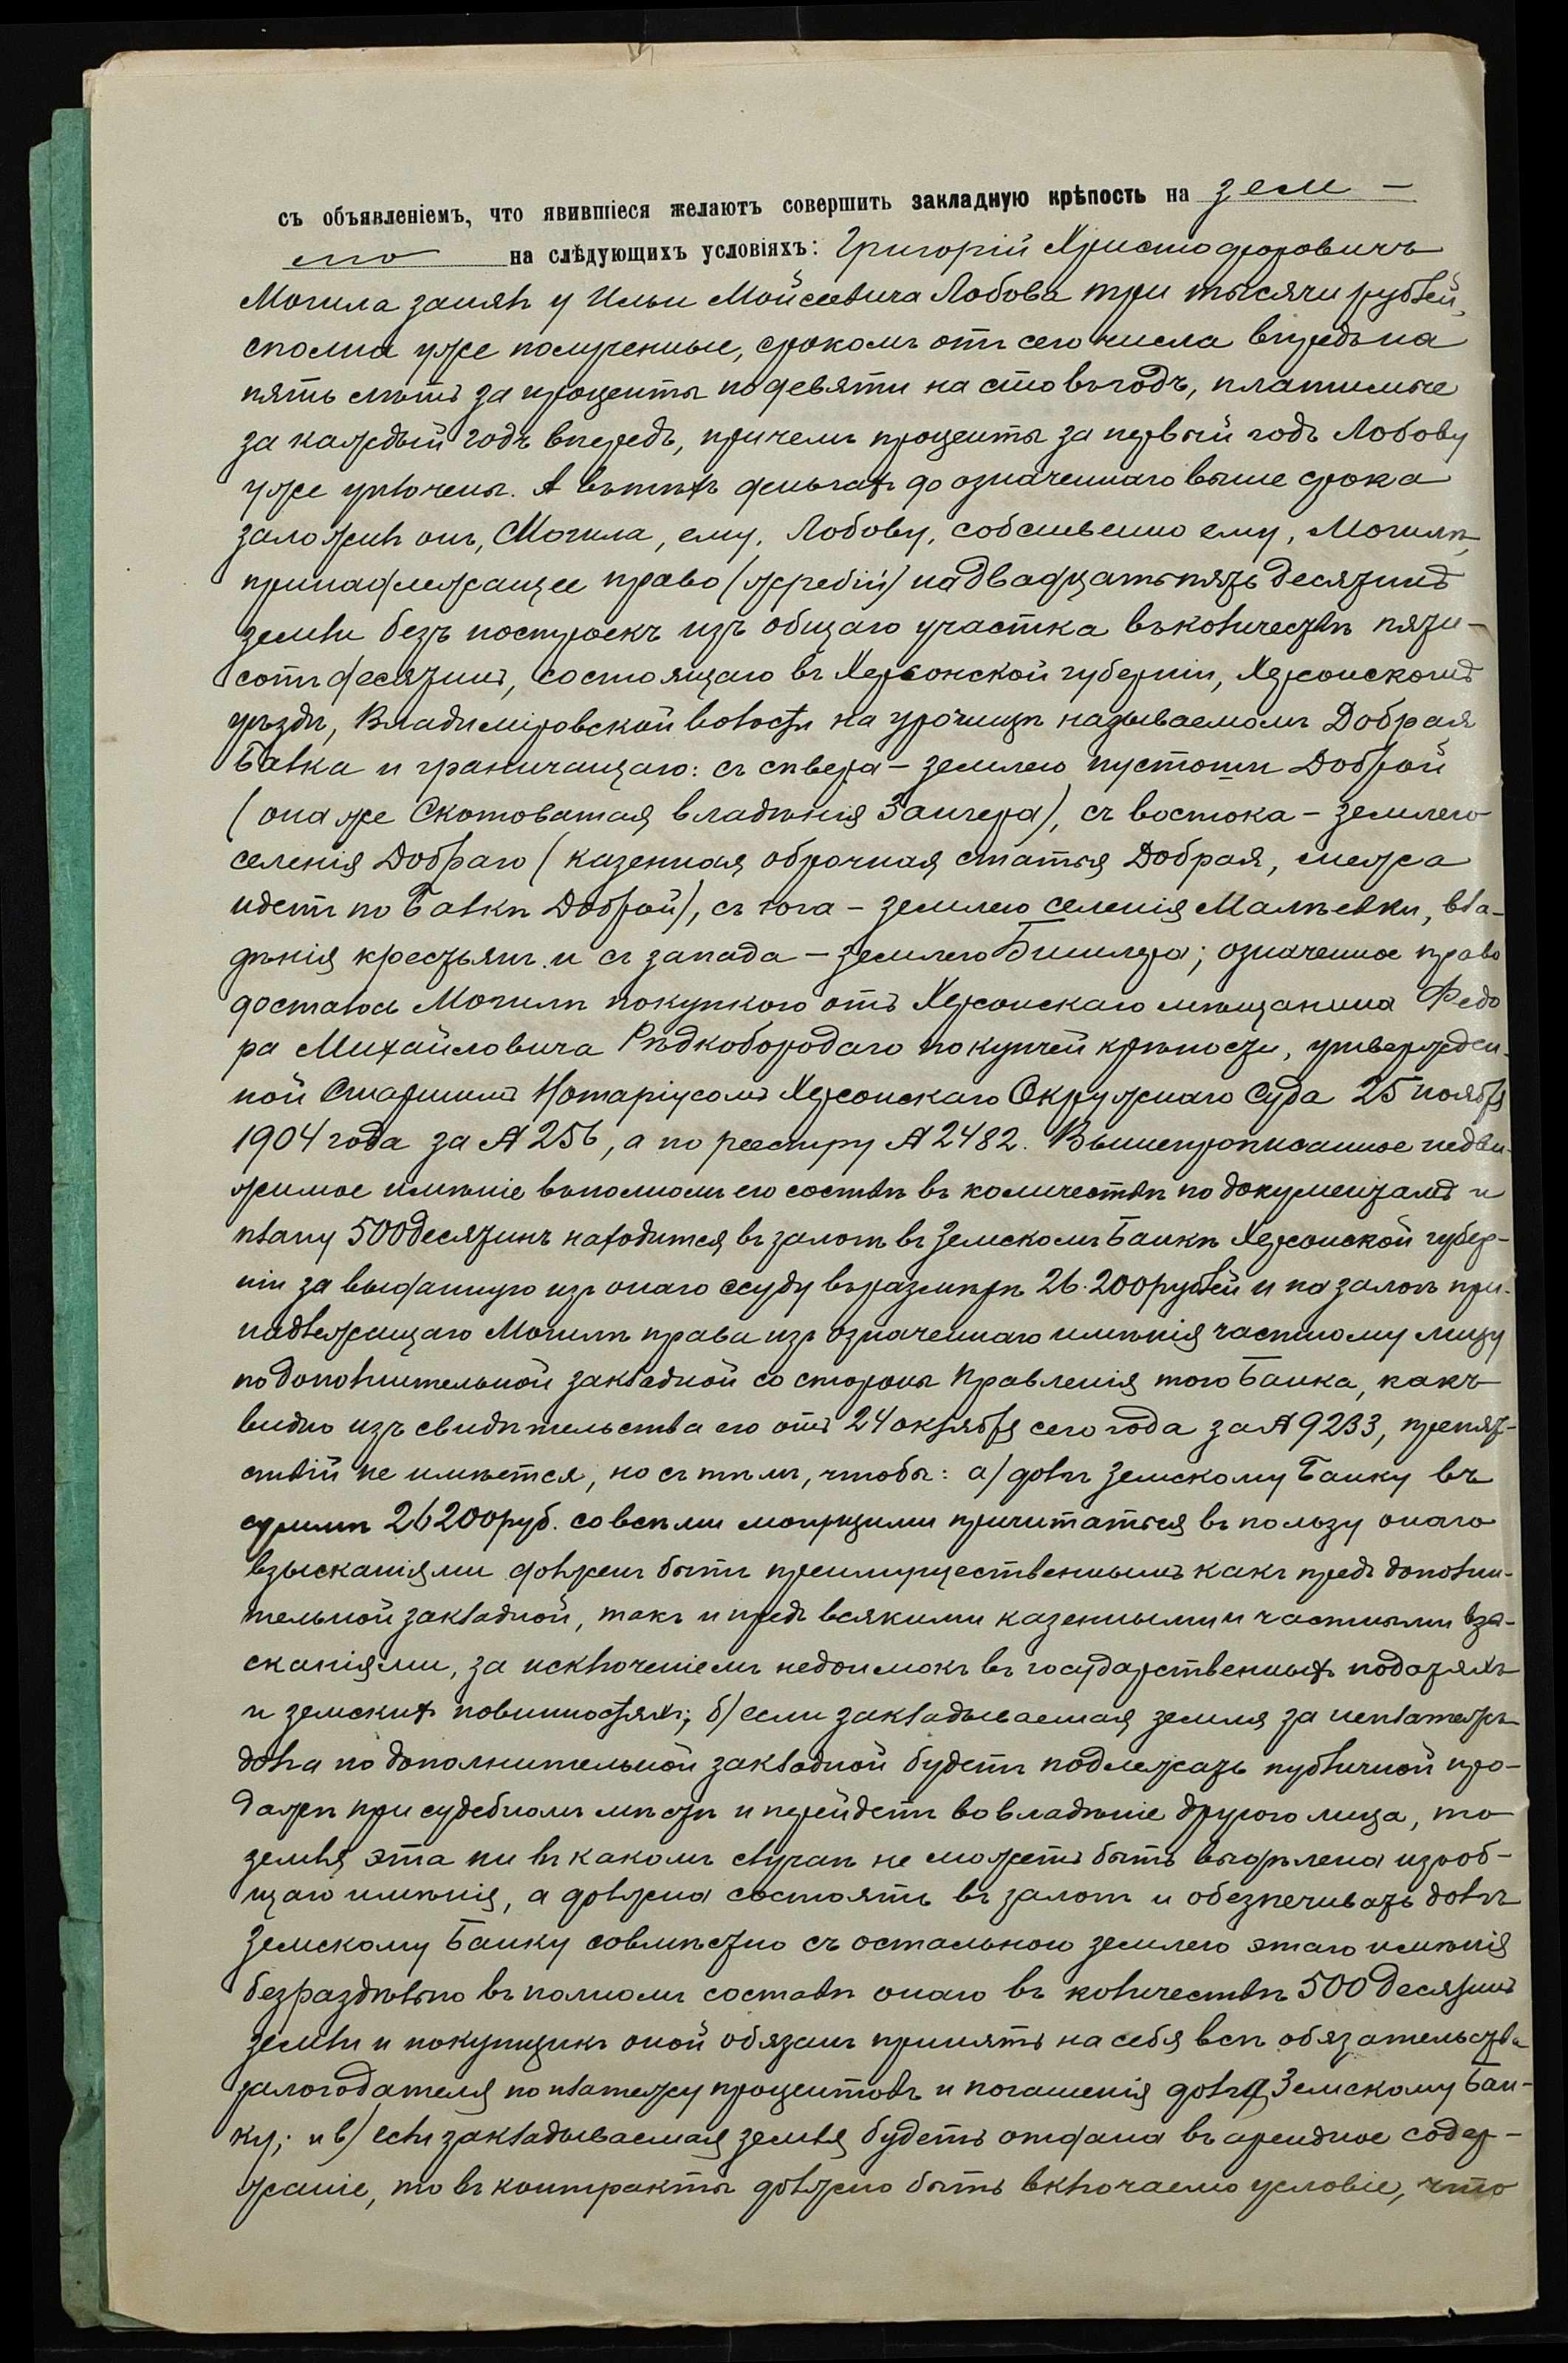 съ объявленіемъ, что явившіеся желаютъ совершить закладную крѣпость на зем-
лю на слѣдующихъ условіяхъ: Григорій Христофоровичъ
Могила занялъ у Ильи Мойсеевича Лобова три тысячи рублей,
сполна уже полученные, срокомъ отъ сего числа впредь на
пять лѣтъ за проценты по девяти на сто въ годъ, платимые
за каждый годъ впередъ, причемъ проценты за первый годъ Лобову
уже уплочены. А въ тѣхъ деньгахъ до означеннаго выше срока
заложилъ онъ, Могила, ему, Лобову, собственно ему, Могилѣ,
принадлежащее право (жребій) на двадцать пять десятинъ
земли безъ построекъ изъ общаго участка въ количествѣ пяти-
сотъ десятинъ, состоящаго въ Херсонской губерніи, Херсонскомъ
уѣздѣ, Владиміровской волости на урочищѣ называемомъ Добрая
Балка и граничащаго: съ сѣвера – землею пустоши Доброй
(она же Скотоватая владѣнія Зангера), съ востока – землею
селенія Добраго (казенная оброчная статья Добрая, межа
идетъ по Балкѣ Доброй), съ юга – землею селенія Малѣевки, вла-
дѣнія крестьянъ и съ запада – землею Бишлера; означенное право
досталось Могилѣ покупкою отъ Херсонскаго мѣщанина Федо
ра Михайловича Рѣдкобородаго по купчей крѣпости, утвержден-
ной Старшимъ Нотаріусомъ Херсонскаго Окружнаго Суда 25 ноября
1904 года за № 256, а по реестру № 2482. Вышепрописанное недви-
жимое имѣніе въ полномъ его составѣ въ количествѣ по документамъ и
плану 500 десятинъ находится въ залогѣ въ Земскомъ Банкѣ Херсонской губер-
ніи за выданную изъ онаго ссуду въ размѣрѣ 26.200 рублей и на залогъ при-
надлежащаго Могилѣ права изъ означеннаго имѣнія частному лицу
по дополнительной закладной со стороны Правленія того Банка, какъ
видно изъ свидѣтельства его отъ 24 октября сего года за № 9233, препят-
ствій не имѣется, но съ тѣмъ, чтобы: а) долгъ Земскому Банку въ
суммѣ 26200 руб. со всѣми могущими причитаться въ пользу онаго
взысканіями долженъ быть преимущественнымъ какъ предъ дополни-
тельной закладной, такъ и предъ всякими казенными и частными взы-
сканіями, за исключеніемъ недоимокъ въ государственныхъ податяхъ
и земскихъ повинностяхъ; б) если закладываемая земля за неплатежъ
долга по дополнительной закладной будетъ подлежать публичной про-
дажѣ при судебномъ мѣстѣ и перейдетъ во владѣніе другого лица, то
земля эта ни въ какомъ случаѣ не можетъ быть выдѣлена изъ об-
щаго имѣнія, а должна состоять въ залогѣ и обезпечивать долгъ
Земскому Банку совмѣстно съ остальною землею этаго имѣнія
безраздѣльно въ полномъ составѣ онаго въ количествѣ 500 десятинъ
земли и покупщикъ оной обязанъ принять на себя всѣ обязательства
залогодателя по платежу процентовъ и погашенія долга Земскому Бан-
ку; и в) если закладываемая земля будетъ отдана въ арендное содер-
жаніе, то въ контракты должно быть включаемо условіе, что